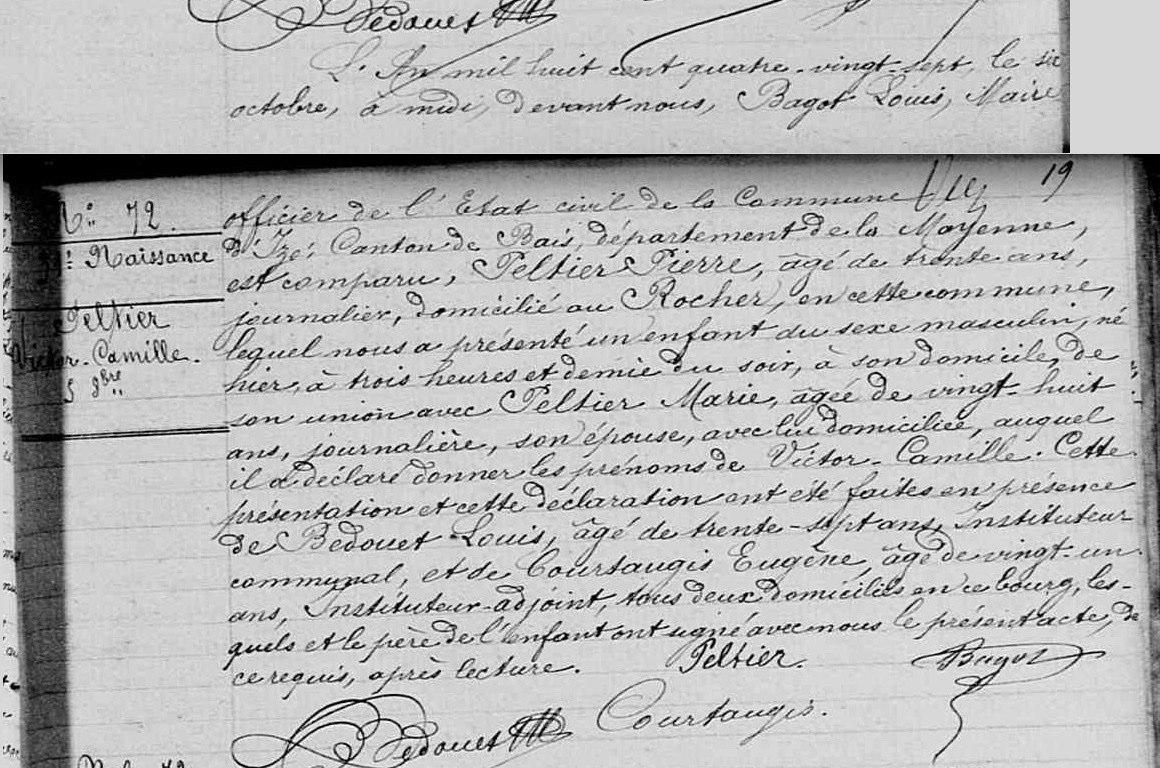 Bedouet
L'An mil huit cent quatre-vingt-sept, le six
octobre, à midi, devant nous, Bagot Louis, Maire
19
N° 72.
Naissance
Peltier
Victor-Camille.
5 8bre
officier de l'Etat civil de la Commune
d'Izé, Canton de Bais, département de la Mayenne,
est comparu, Peltier Pierre, âgé de trente ans,
journalier, domicilié au Rocher, en cette commune,
lequel nous a présenté un enfant du sexe masculin, né
hier, à trois heures et demie du soir, à son domicile, de
son union avec Peltier Marie, âgée de vingt-huit
ans, journalière, son épouse, avec lui domiciliée, auquel
il a déclaré donner les prénoms de Victor-Camille. Cette
présentation et cette déclaration ont été faites en présence
de Bedouet Louis, âgé de trente-sept ans, Instituteur
communal, et de Courtaugis Eugène, âgé de vingt-un
ans, Instituteur-adjoint, tous deux domiciliés en ce bourg, les-
quels et le père de l'enfant ont signé avec nous le présent acte, de
ce requis, après lecture. Peltier. Bagot
Bedouet Courtaugis.